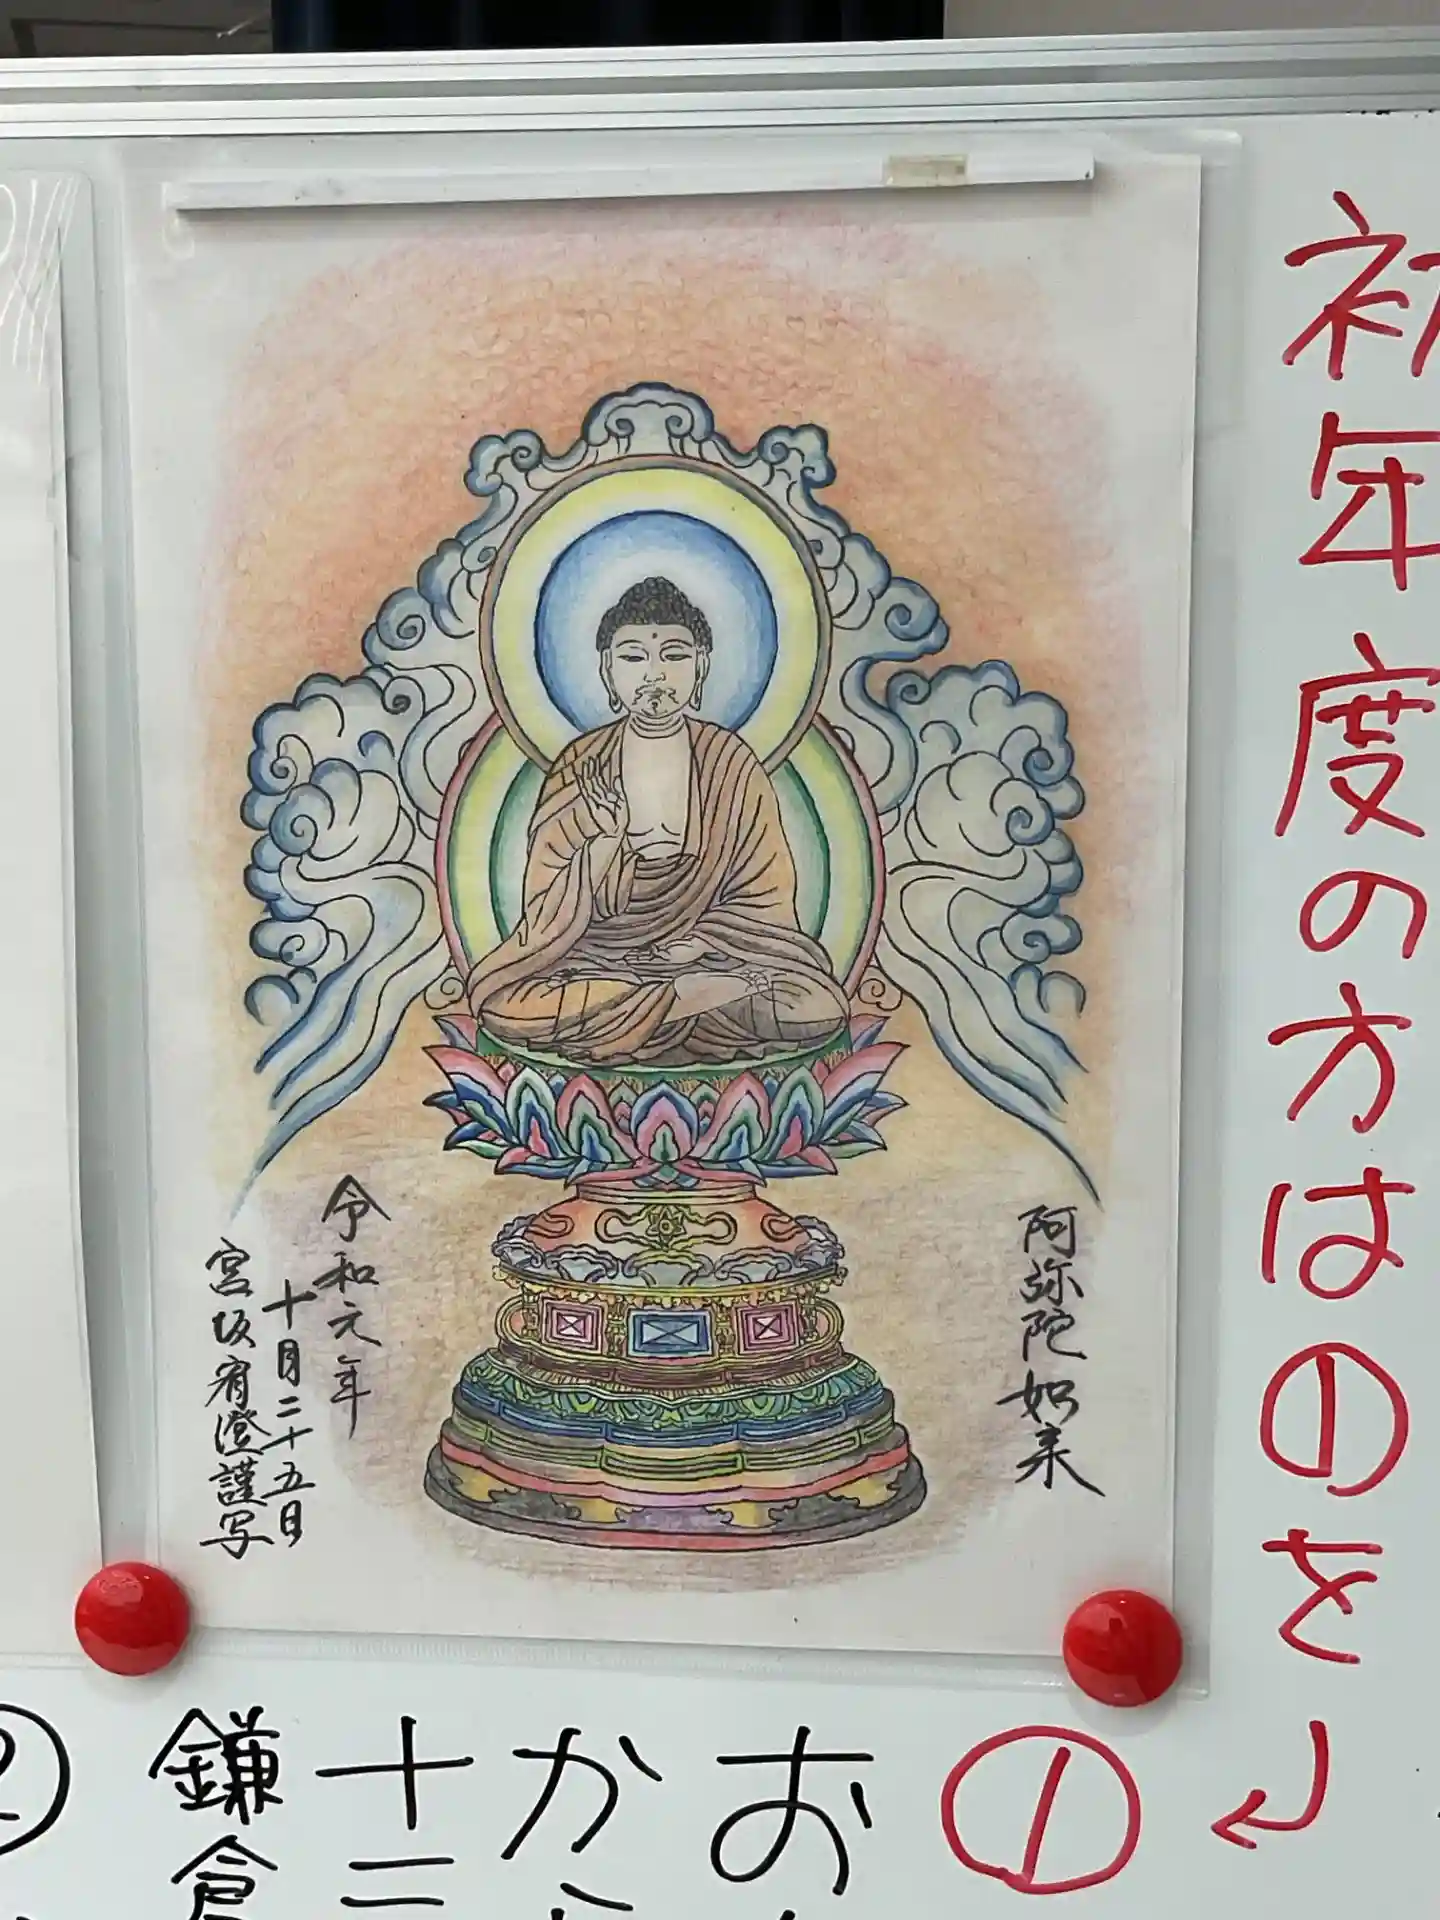 初年度の方は①を
阿弥陀如来
令和元年
十月二十五日
宮坂宥澄謹写
①
お
か
十二
鎌倉